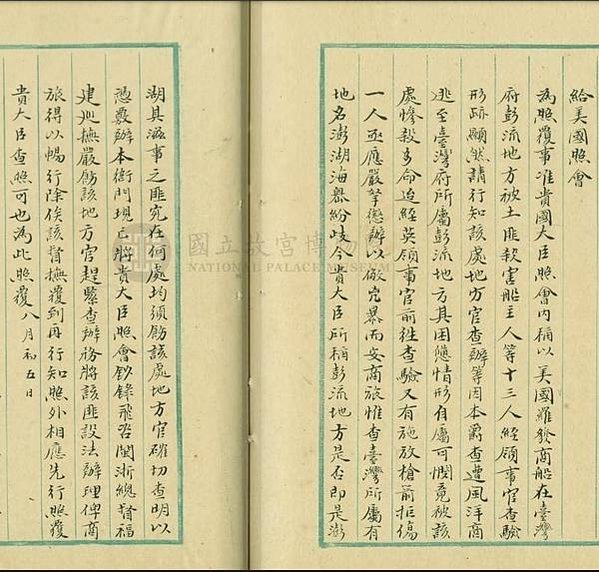 給美國照會
為照覆事准貴國大臣照會內稱以美國羅發商船在臺灣
府彭流地方被土匪殺害船主人等十三人經領事官查驗
形跡顯然請行知該處地方官查辦等因本爵查遭風洋商
逃至臺灣府所屬彭流地方其困憊情形自屬可憫竟被該
處慘殺多命迨經英領事官前往查驗又有施放槍箭拒傷
一人亟應嚴拏懲辦以儆兇暴而安商旅惟查臺灣所屬有
地名澎湖海嶴紛歧今貴大臣所稱彭流地方是否即是澎
湖具滋事之匪究在何處均須飭該處地方官確切查明以
憑覈辦本衙門現已將貴大臣照會鈔錄飛咨閩浙總督福
建巡撫嚴飭該地方官趕緊查辦務將該匪設法辦理俾商
旅得以暢行除俟該督撫覆到再行知照外相應先行照覆
貴大臣查照可也為此照覆八月初五日
國立故宮博物
NATIONAL PALACE MUSEUM